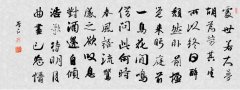 處世若大夢
胡為勞其生
所以終日醉
頹然臥前楹
覺來眄庭前
一鳥花間鳴
借問此何時
春風語流鶯
感之欲歎息
對酒還自傾
浩歌待明月
曲盡已忘情